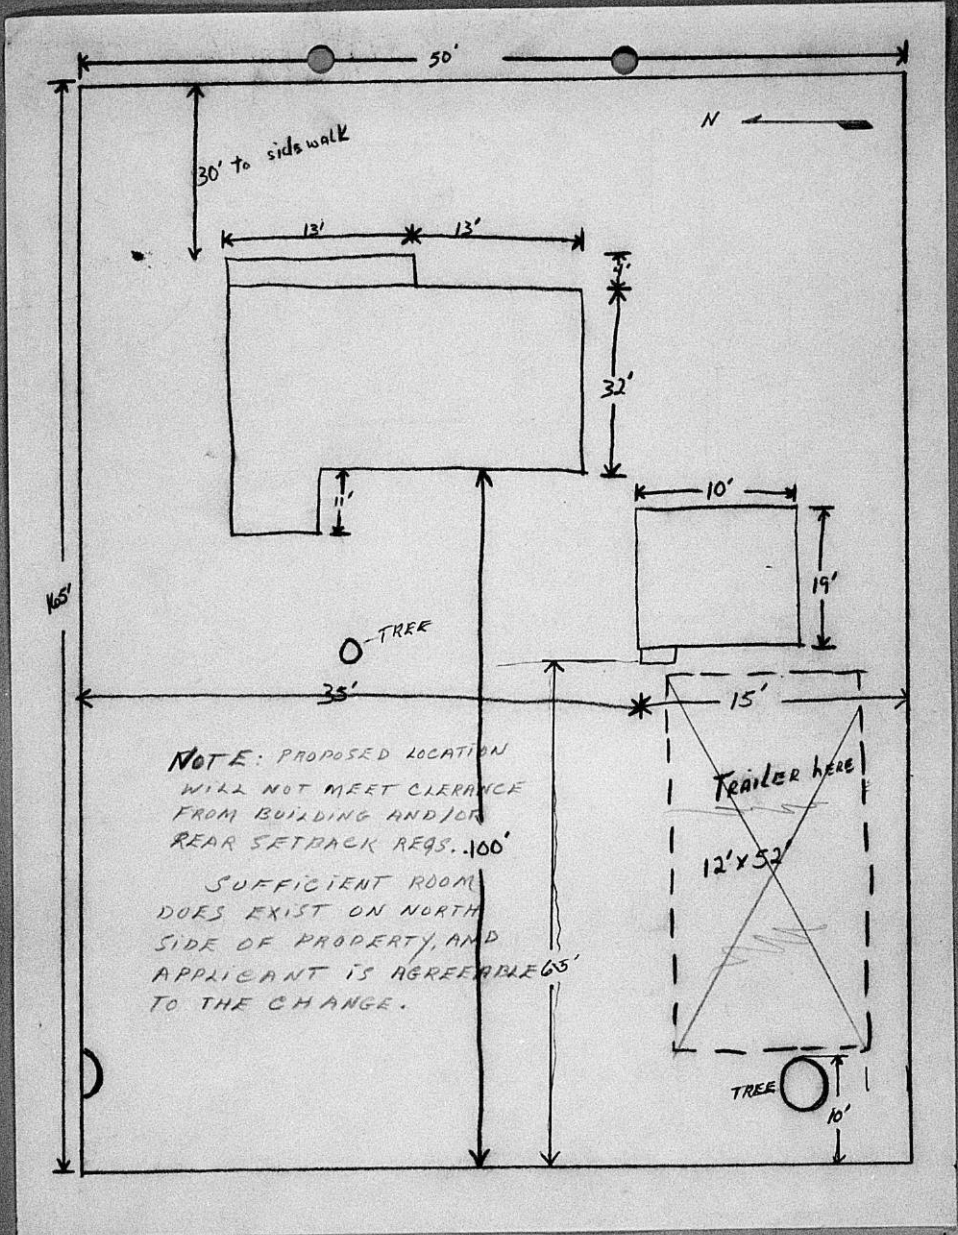 50'
N
30' to sidewalk
13' 13'
4'
32'
11'
10'
19'
165'
TREE
35' 15'
NOTE: PROPOSED LOCATION
WILL NOT MEET CLERANCE
FROM BUILDING AND/OR
REAR SETBACK REQS.
100'
SUFFICIENT ROOM
DOES EXIST ON NORTH
SIDE OF PROPERTY, AND
APPLICANT IS AGREEABLE
TO THE CHANGE.
65'
TRAILER HERE
12' x 52'
TREE
10'